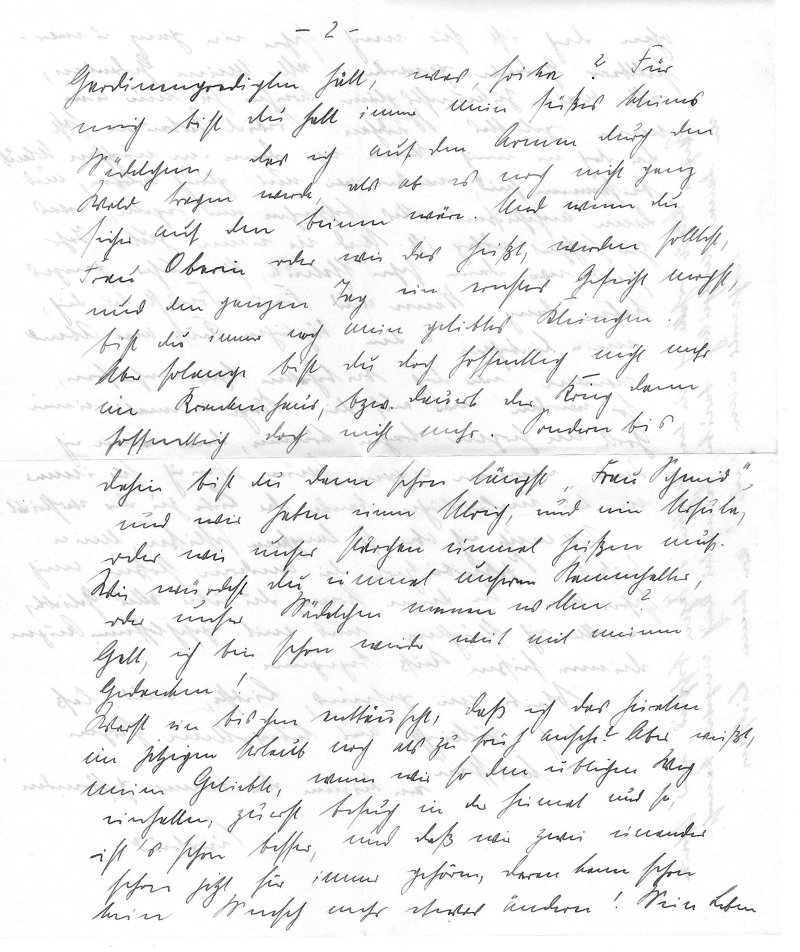 - 2 -
Gardinenpredigten hält, was, ? Für
mich bist du halt immer mein süßes kleines
Mädelchen, das ich auf den Armen durch den
Wald tragen werde, als ob es noch nicht ganz
sicher auf den Beinen wäre. Und wenn du
Frau Oberin oder wie das heißt, werden solltest,
und den ganzen Tag ein ernstes Gesicht machst,
bist du immer noch mein geliebtes Kleinchen.
Aber solange bist du doch hoffentlich nicht mehr
im Krankenhaus, bzw. dauert der Krieg dann
hoffentlich doch nicht mehr. Sondern bis
dahin bist du dann schon längst „Frau Schmid"
und wir haben einen Ulrich, und ein Ursula,
oder wie unser einmal heißen muß.
Wie würdest du einmal unseren Stammhalter,
oder unser Mädelchen nennen wollen?
Gelt, ich bin schon wieder weit mit meinen
Gedanken!
Warst ein bischen enttäuscht, daß ich das heiraten
im jetzigen Urlaub noch als zu früh ansehe? Aber weißt,
meine Geliebte, wenn wir so den üblichen Weg
einhalten, zuerst Besuch in der Heimat und so,
ist's schon besser, und daß wir zwei einander
schon jetzt für immer gehören, daran kann schon
kein Mensch mehr etwas ändern! Mein Leben